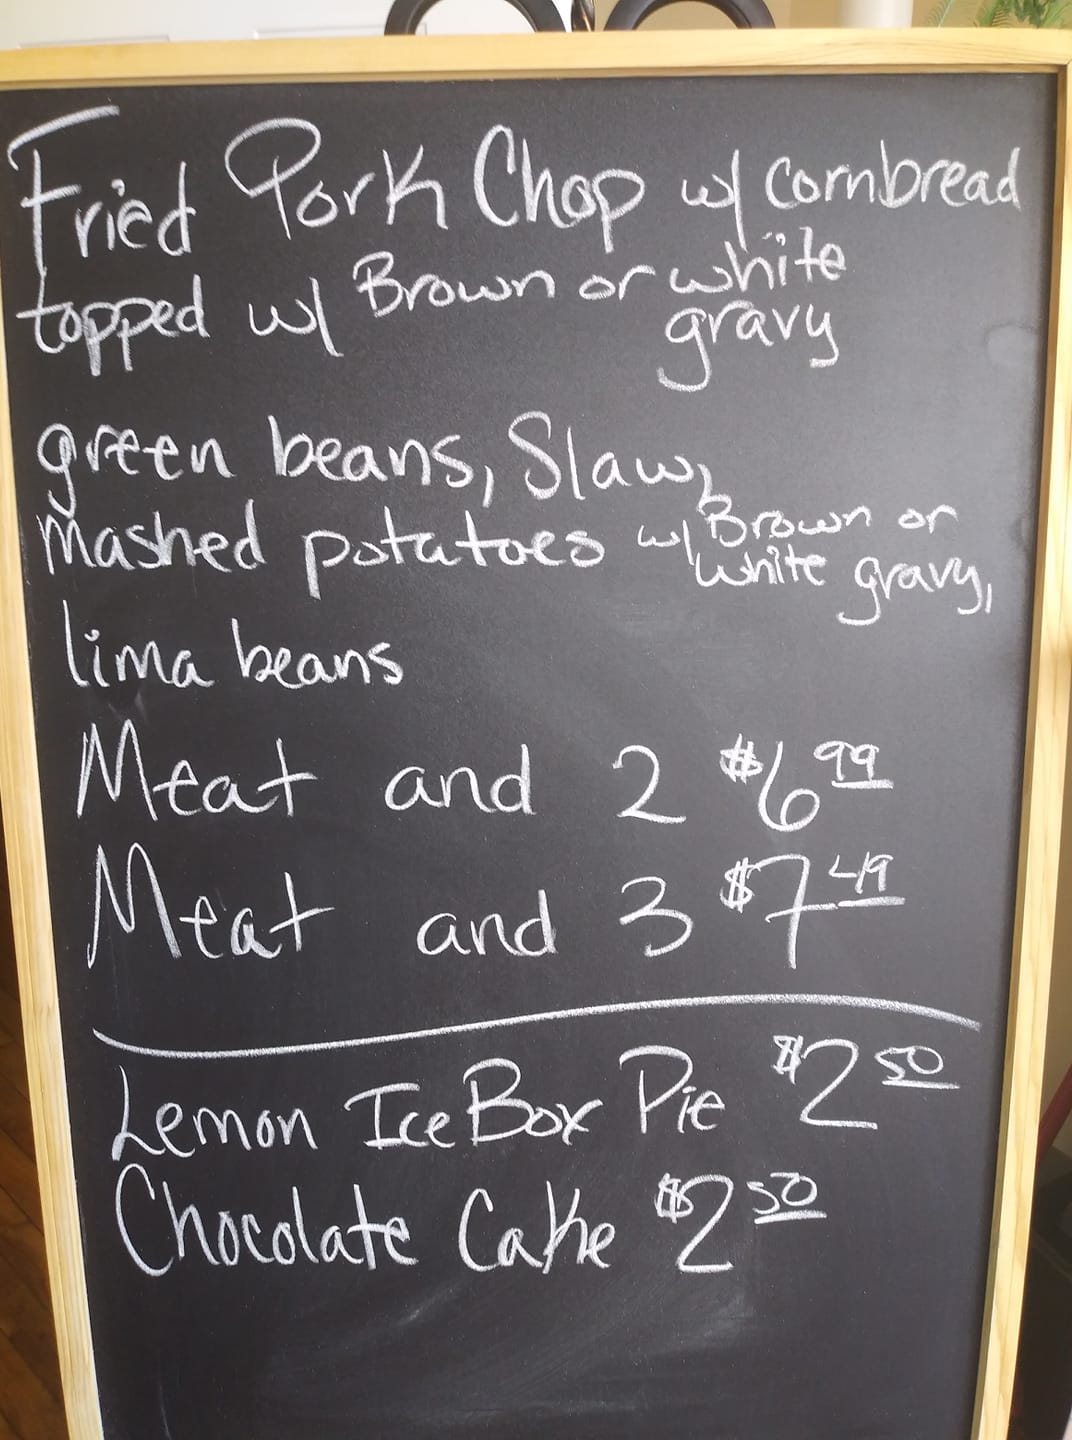 Fried Pork Chop w/ cornbread
topped w/ Brown or white
gravy
green beans, Slaw,
Mashed potatoes w/ Brown or
white gravy,
lima beans
Meat and 2 $6 99
Meat and 3 $7 49
Lemon Ice Box Pie $2 50
Chocolate Cake $2 50